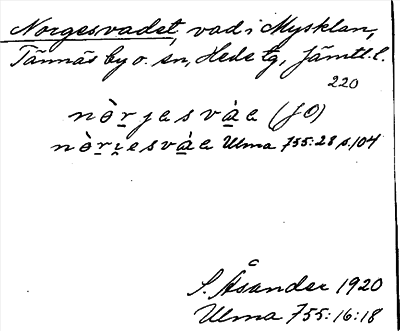 Norgesvadet, vad i Mysklan,
Tännäs by o. sn, Hede tg, Jämtl. l.
220
nòrjesváe (JO)
nòri̯esváe Ulma 755:28 s.104
S. Åsander 1920
Ulma 755:16:18